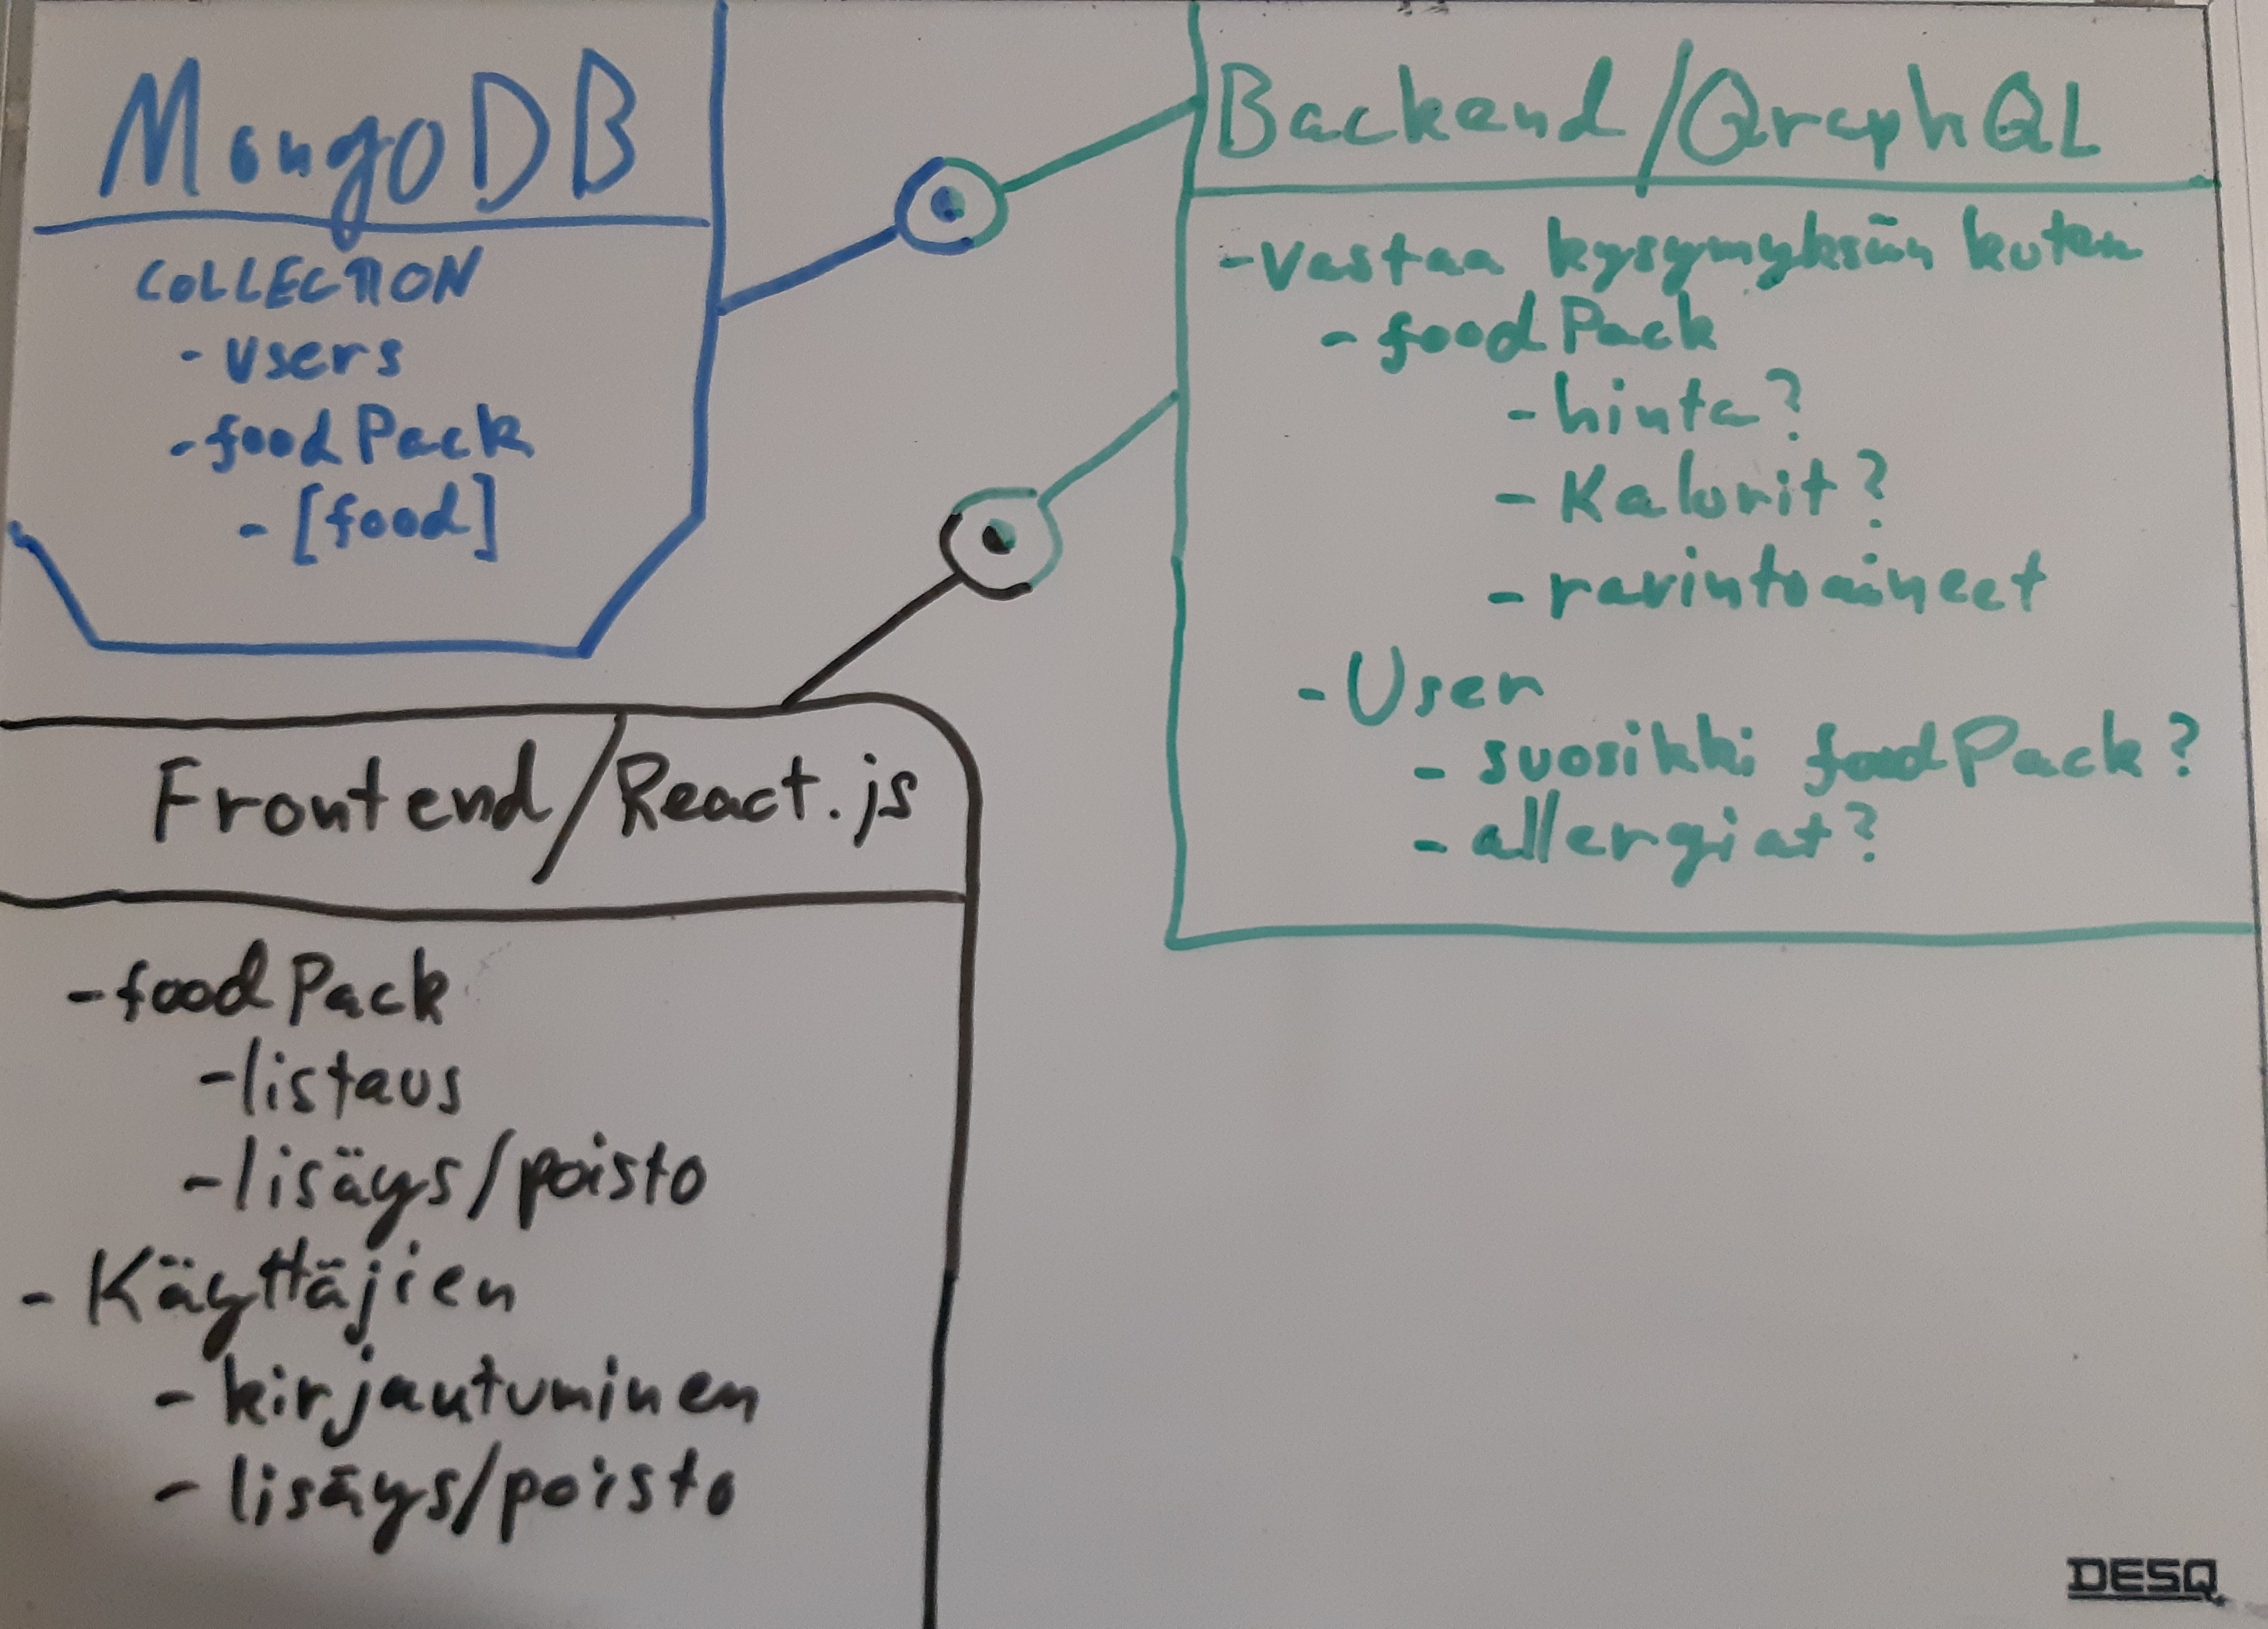 MongoDB
COLLECTION
- users
- foodPack
- [food]
Backend/GraphQL
- Vastaa kysymyksiin kuten
- foodPack
- hinta?
- Kalorit?
- ravintoaineet
- User
- suosikki foodPack?
- allergiat?
Frontend/React.js
- foodPack
- listaus
- lisäys/poisto
- Käyttäjien
- kirjautuminen
- lisäys/poisto
DESQ